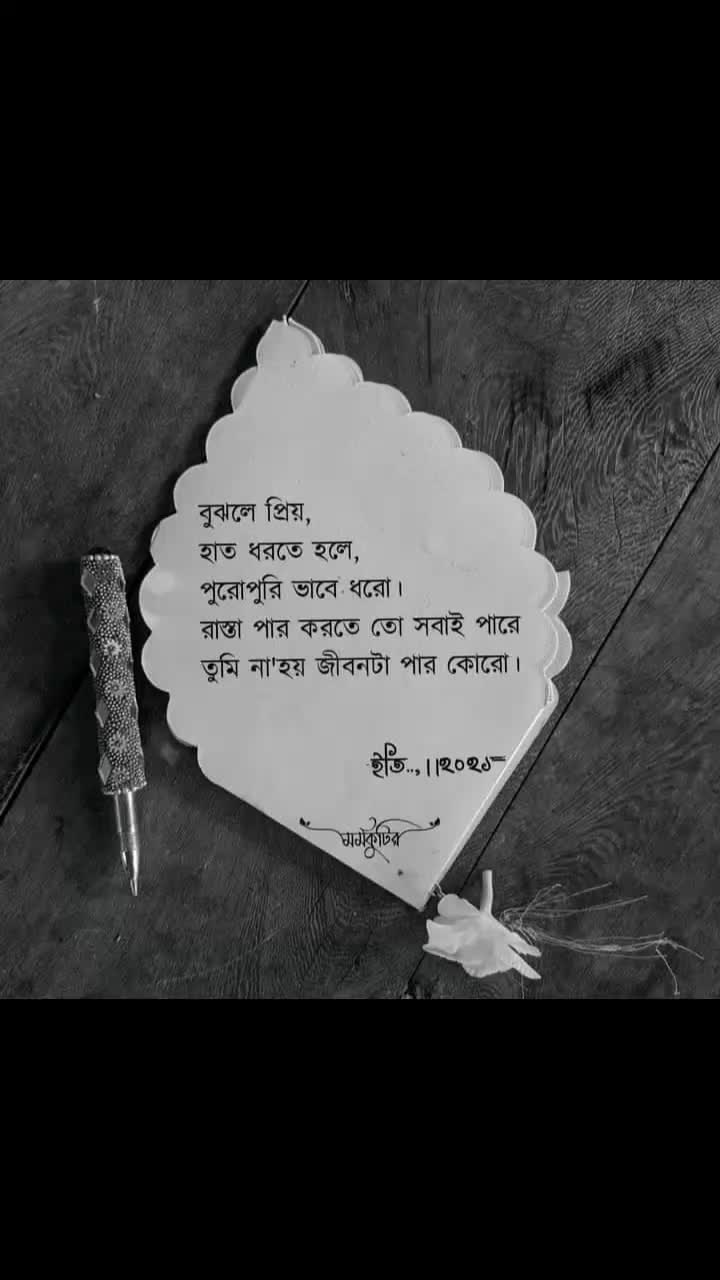 বুঝলে প্রিয়,
হাত ধরতে হলে,
পুরোপুরি ভাবে ধরো।
রাস্তা পার করতে তো সবাই পারে
তুমি না'হয় জীবনটা পার কোরো।
ইতি..,।।২০২১
মর্মকুটির